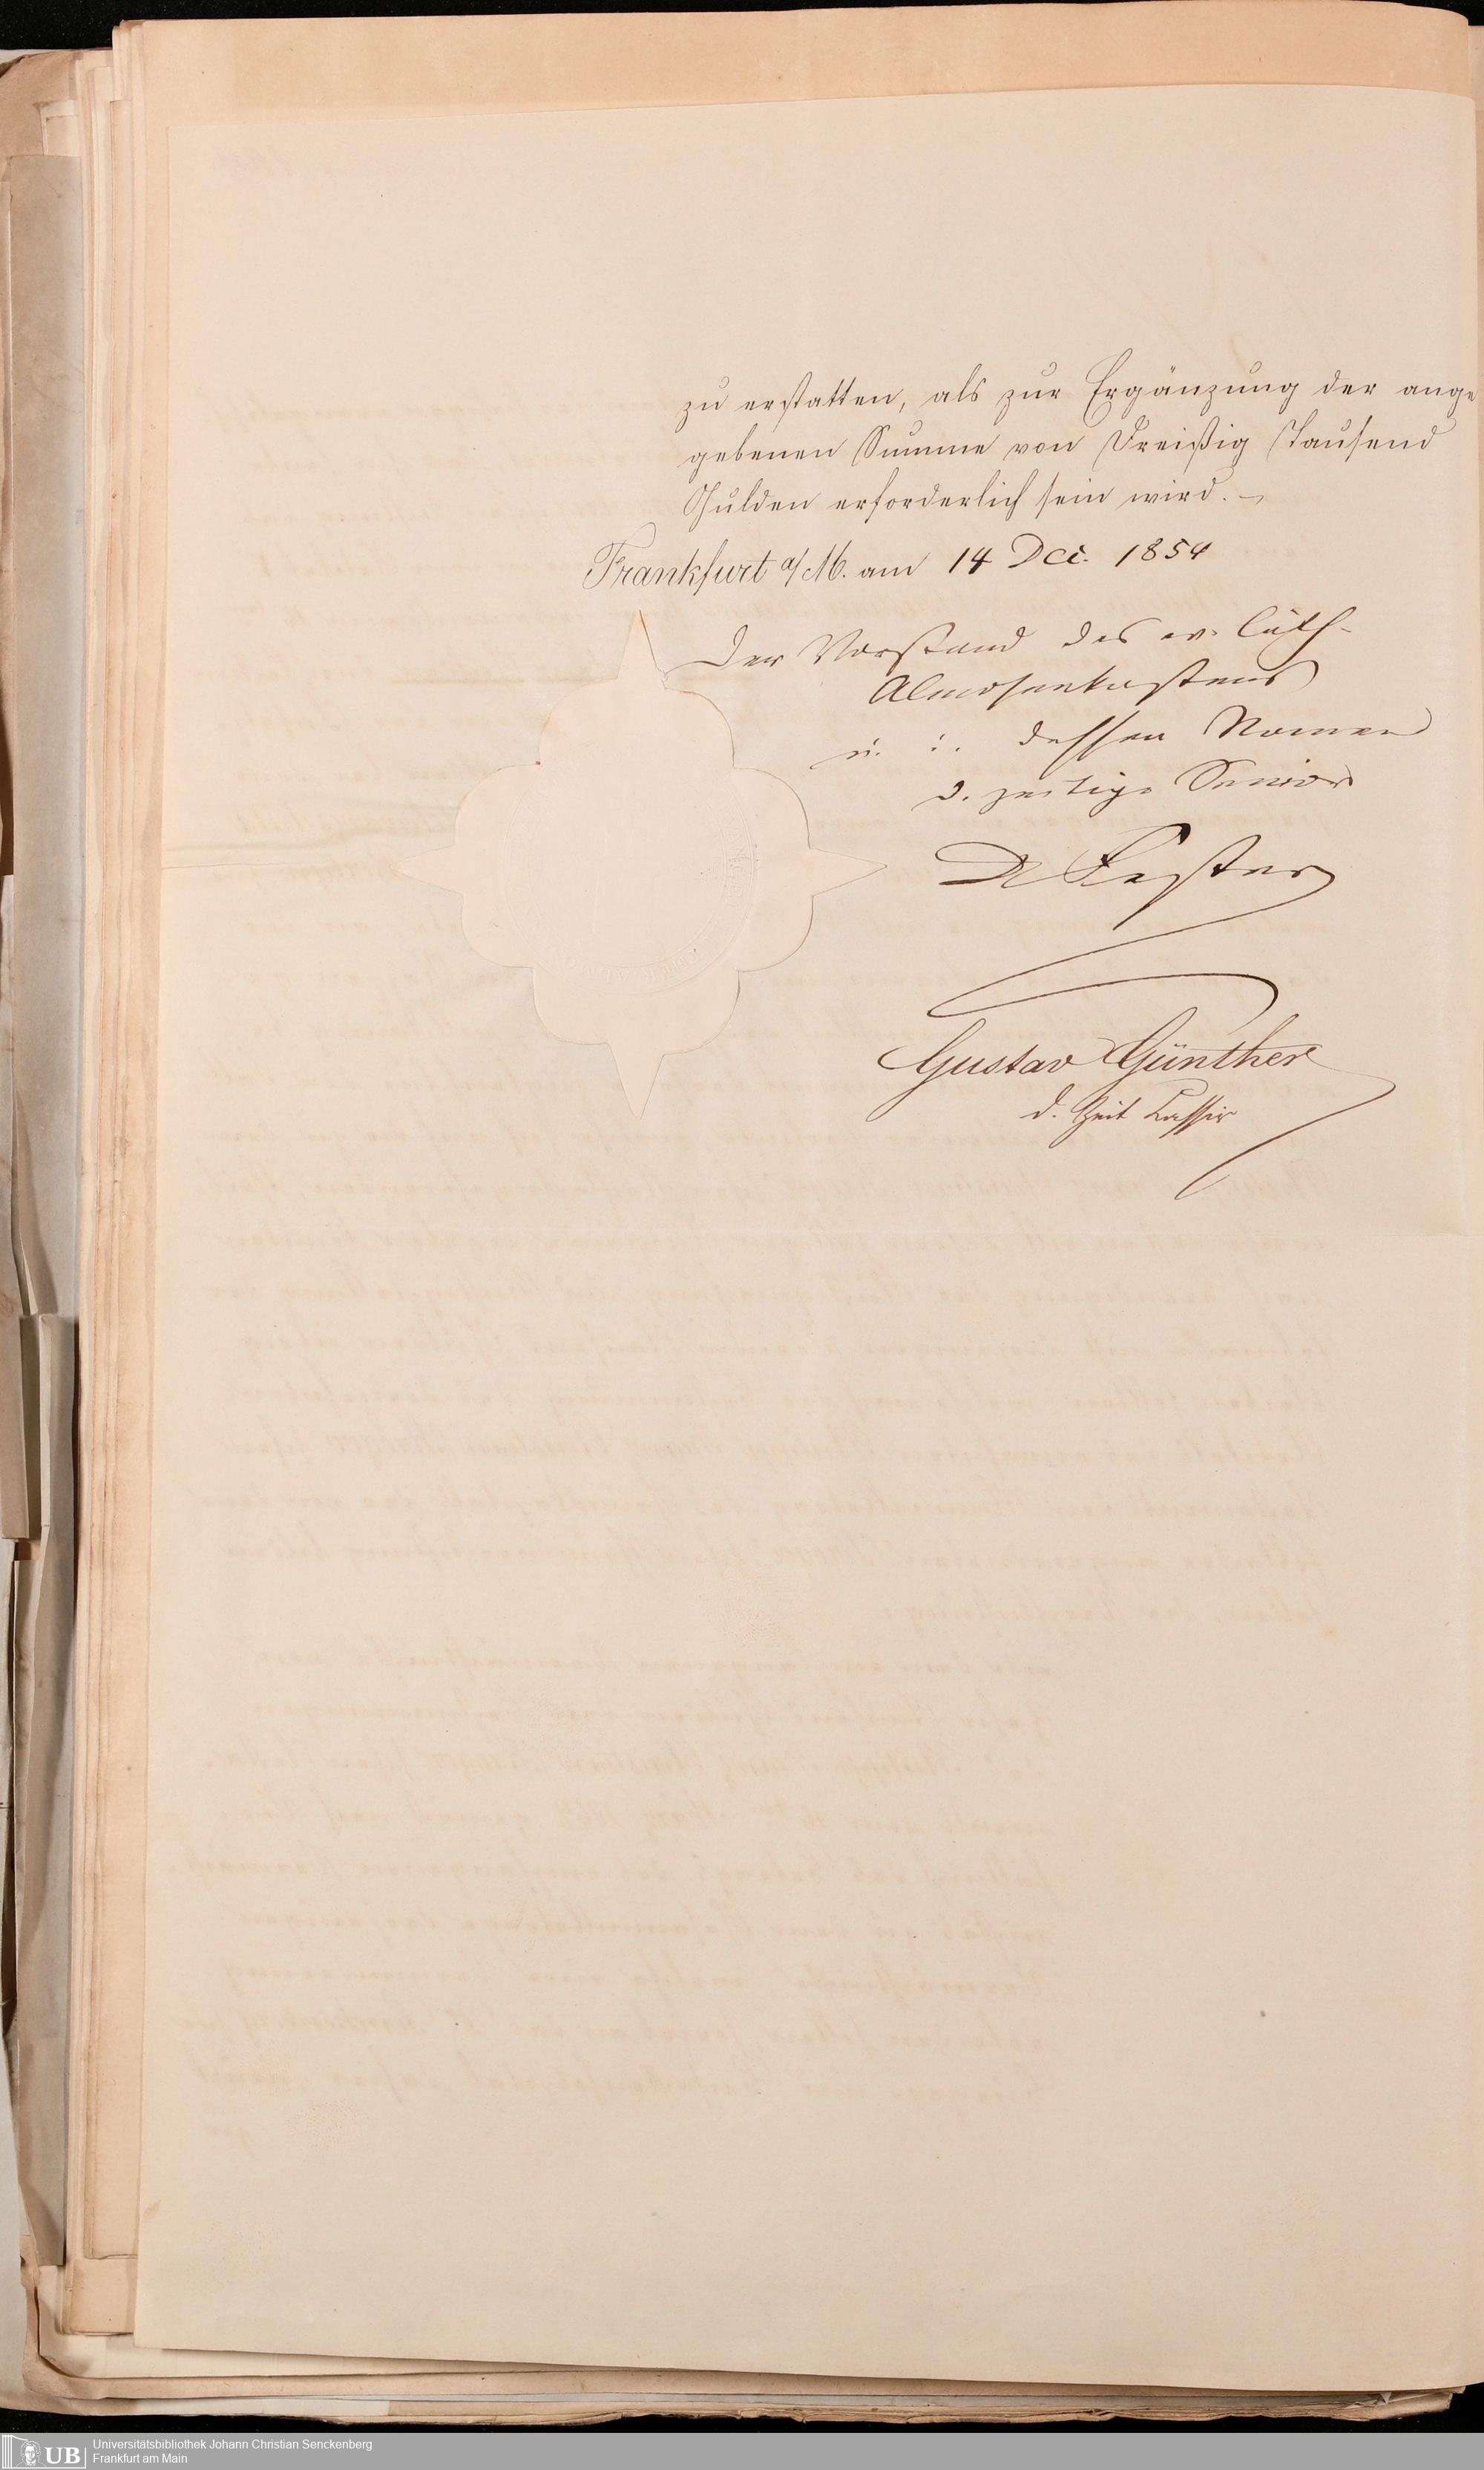 zu erstatten, als zur Ergänzung der ange
gebenen Summe von Dreißig Tausend
Gulden erforderlich sein wird. –
Frankfurt a/M. am 14 Dec. 1854
Der Vorstand des ev. luth.
Almosenkastens
u. i. dessen Namen
d. zeitige Senior
Dr Fester
Gustav Günther
d. Zeit Cassir
UB
Universitätsbibliothek Johann Christian Senckenberg
Frankfurt am Main